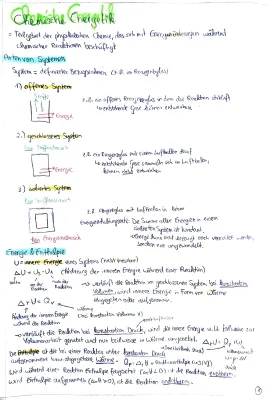 Chemische Energetik
= Teilgebiet der physikalischen Chemie, das sich mit Energieänderungen während
chemischer Reaktionen beschäftigt
Arten von Systemen
System = definierter Bezugsrahmen (z.B. ein Reagenzglas)
1.) offenes System
Stoffe
Energie
z.B. ein offenes Reagenzglas in dem die Reaktion abläuft
↳ entstehende Gase können entweichen
2.) geschlossenes System
kein Stoffaustausch
Energie
z.B. ein Reagenzglas mit einem Luftballon drauf
↳ entstehende Gase sammeln sich im Luftballon,
können nicht entweichen
3.) isoliertes System
kein Stoffaustausch
kein Energieaustausch
z.B. Reagenzglas mit Luftballon in
Energieerhaltungssatz: Die Summe aller Energien in einem
isolierten System ist konstant,
Energie kann nicht erzeugt noch vernichtet werden,
sondern nur umgewandelt.
Energie & Enthalpie
U = innere Energie eines Systems (nicht messbar)
ΔU = U₂ - U₁ (Änderung der inneren Energie während einer Reaktion)
nach der Reaktion
vor der Reaktion
→ verläuft die Reaktion im geschlossenen System bei konstantem
Volumen, wird innere Energie in Form von Wärme
abgegeben oder aufgenommen.
ΔrU = Qv
Änderung der inneren Energie
während der Reaktion
Wärme
(bei konstantem Volumen V)
→ verläuft die Reaktion bei konstantem Druck, wird die innere Energie U teilweise zur
Volumenarbeit genutzt und nur teilweise in Wärme umgesetzt.
Die Enthalpie ist die bei einer Reaktion unter konstantem Druck
aufgenommene bzw. abgegebene Wärme.
Wird während einer Reaktion Enthalpie freigesetzt (ΔrH < 0) ist die Reaktion exotherm,
wird Enthalpie aufgenommen (ΔrH > 0) ist die Reaktion endotherm.
1